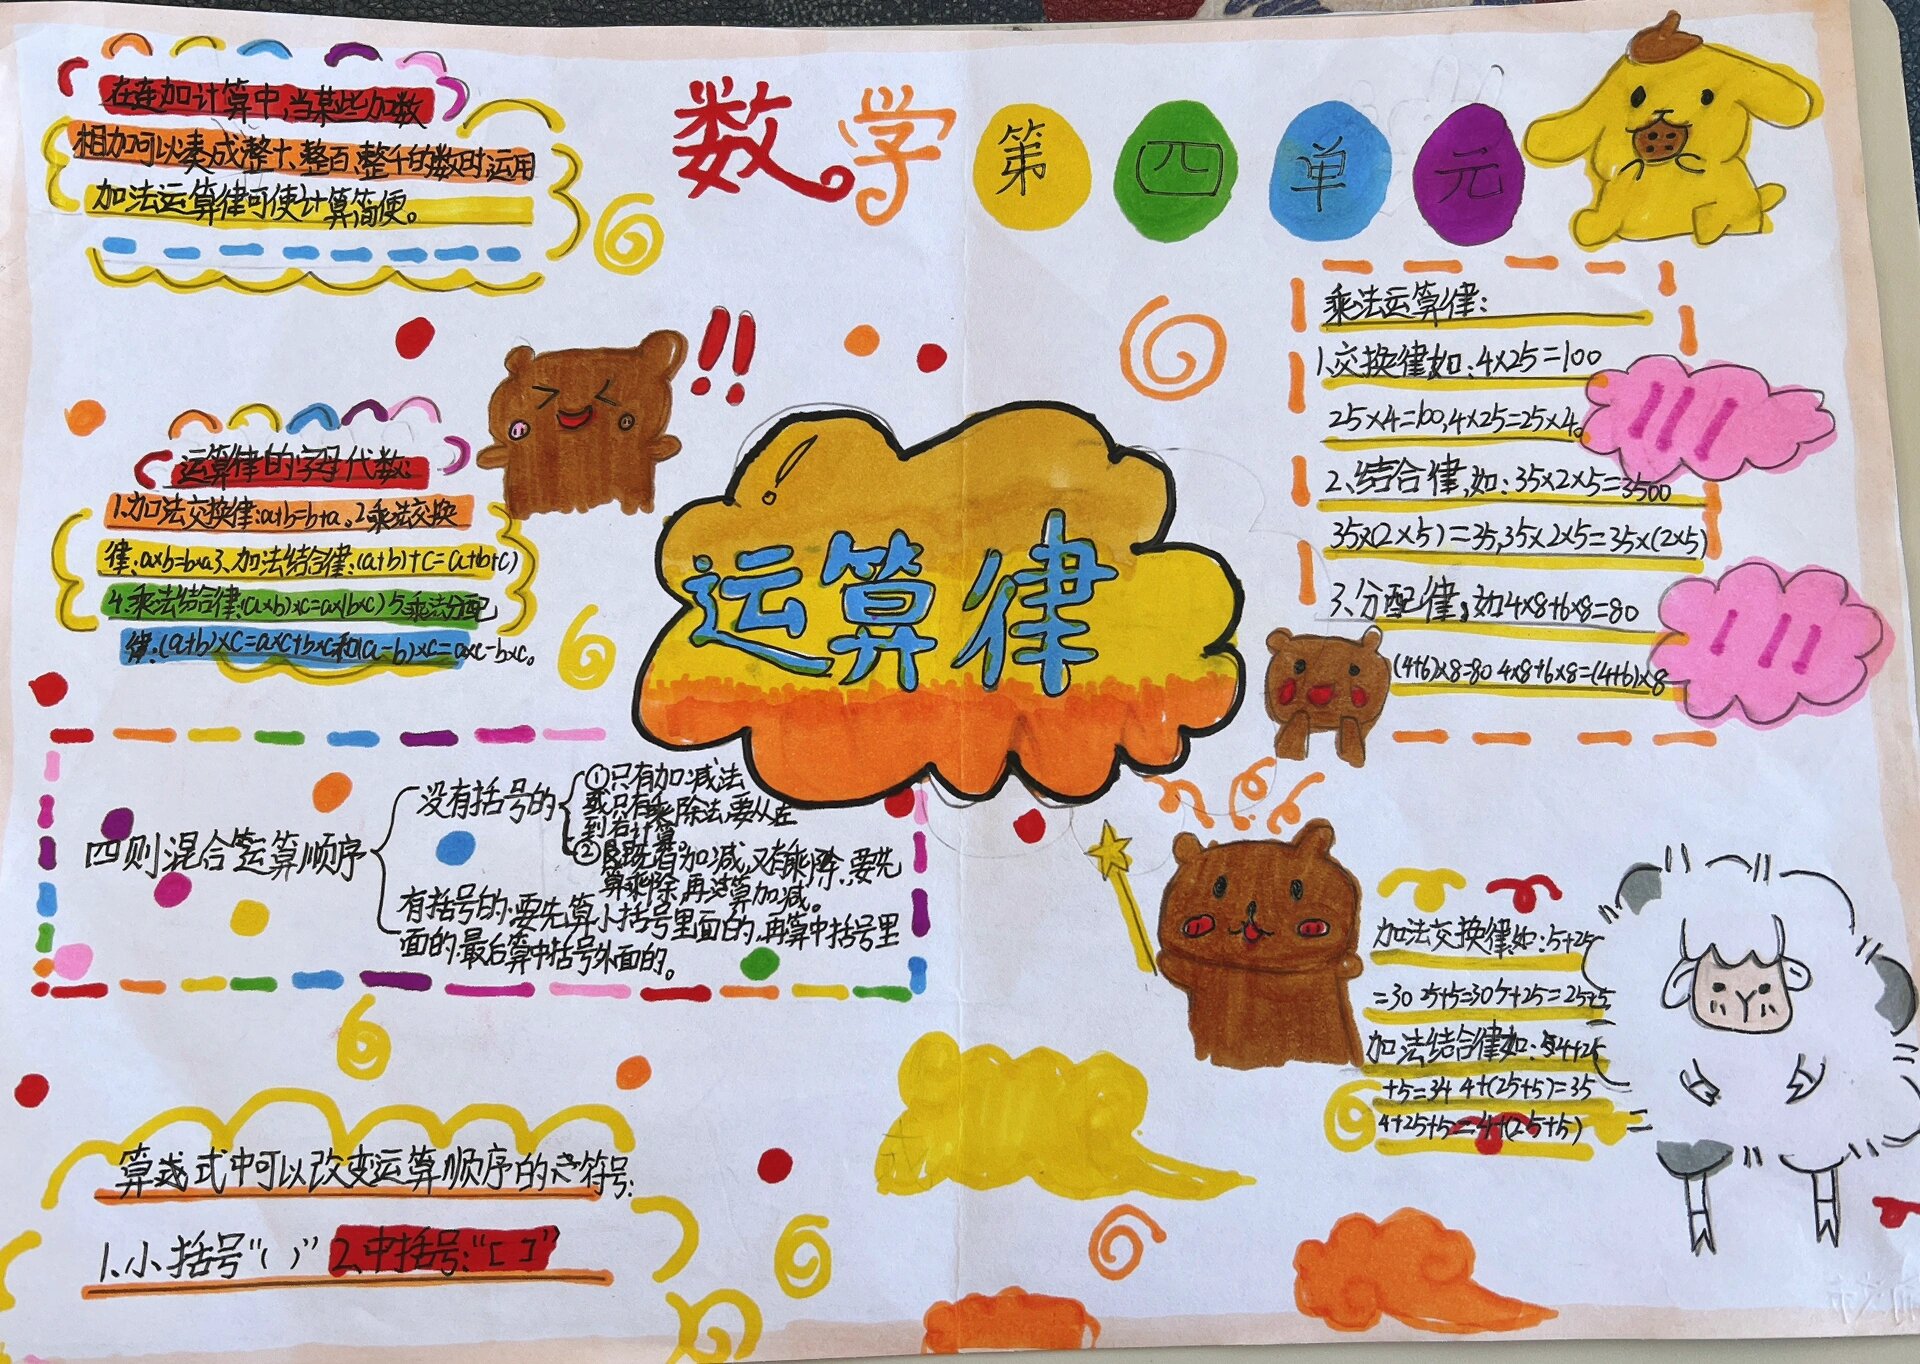 数学第四单元
在连加计算中,当某些加数
相加可以凑成整十、整百、整千的数时,运用
加法运算律可使计算简便。
运算律的字母代数:
1.加法交换律:a+b=b+a。2.乘法交换
律:a×b=b×a3、加法结合律:(a+b)+c=(a+b+c)
4.乘法结合律:(a×b)×c=a×(b×c)5.乘法分配
律:(a+b)×c=a×c+b×c和(a-b)×c=a×c-b×c。
运算律
乘法运算律:
1.交换律如:4×25=100
25×4=100,4×25=25×4。
2、结合律,如:35×2×5=3500
35×(2×5)=35,35×2×5=35×(2×5)
3、分配律,如4×8+6×8=80
(4+6)×8=80 4×8+6×8=(4+6)×8
四则混合运算顺序
没有括号的
①只有加减法
或只有乘除法,要从左
到右计算。
②既有加减,又有乘除,要先
算乘除,再算加减。
有括号的:要先算小括号里面的,再算中括号里
面的,最后算中括号外面的。
加法交换律如:5+25
=30 25+5=30 5+25=25+5
加法结合律如:4+25
+5=34 4+(25+5)=35
4+25+5=4+(25+5)
算式中可以改变运算顺序的符号:
1.小括号“( )” 2.中括号:“[ ]”